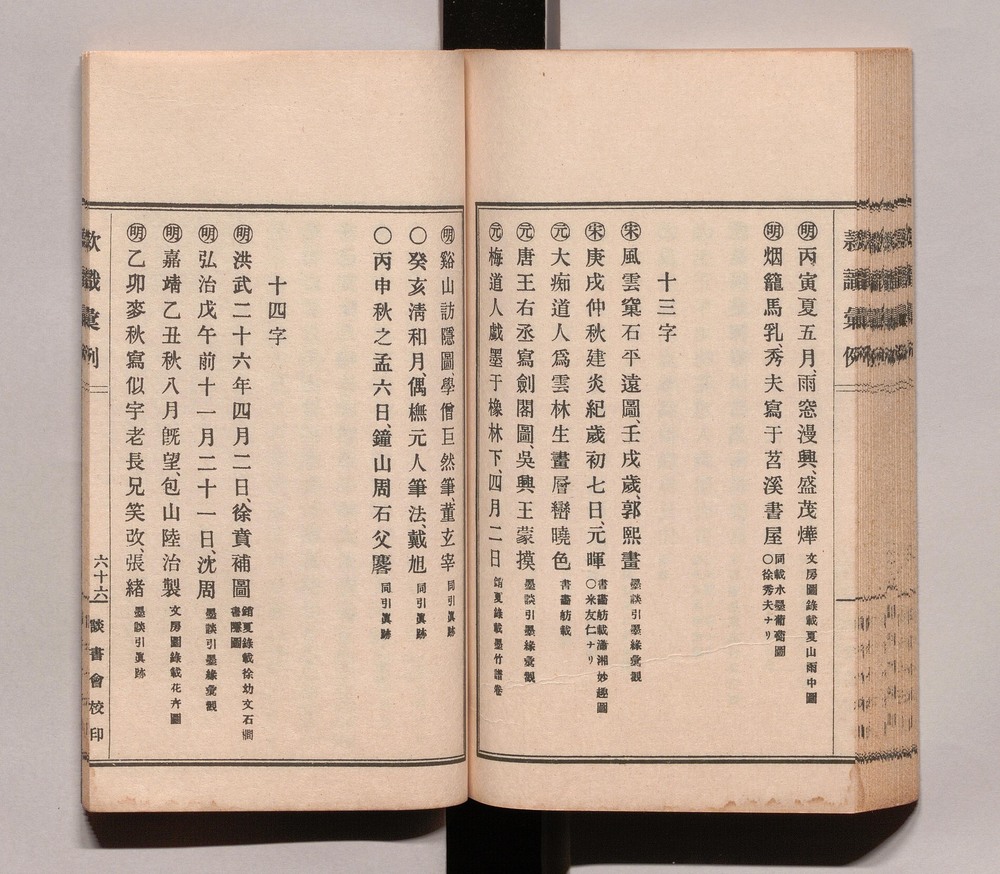 ㊔丙寅夏五月、雨窓漫興、盛茂燁 文房圖錄載夏山雨中圖
㊔烟籠馬乳、秀夫寫于苕溪書屋 同載水墨葡萄圖
○徐秀夫ナリ
十三字
宋風雲窠石平遠圖、壬戌歲、郭熙畫 墨談引墨緣彙觀
宋庚戌仲秋建炎紀歲初七日、元暉 書畵舫載瀟湘妙趣圖
○米友仁ナリ
元大痴道人爲雲林生畫層巒曉色 書畵舫載
元唐王右丞寫劍閣圖、吳興王蒙摸 墨談引墨緣彙觀
元梅道人戲墨于橡林下、四月二日 銷夏錄載墨竹譜卷
明谿山訪隱圖、學僧巨然筆、董玄宰 同引眞跡
○癸亥淸和月、偶橅元人筆法、戴旭 同引眞跡
○丙申秋之孟六日、鐘山周石父 同引眞跡
十四字
明洪武二十六年四月二日、徐賁補圖 銷夏錄載徐幼文石磵
書隱圖
明弘治戊午前十一月二十一日、沈周 墨談引墨緣彙觀
明嘉靖乙丑秋八月旣望、包山陸治製 文房圖錄載花卉圖
明乙卯麥秋寫似宇老長兄笑改、張緒 墨談引眞跡
款識彙例
六十六
談書會校印